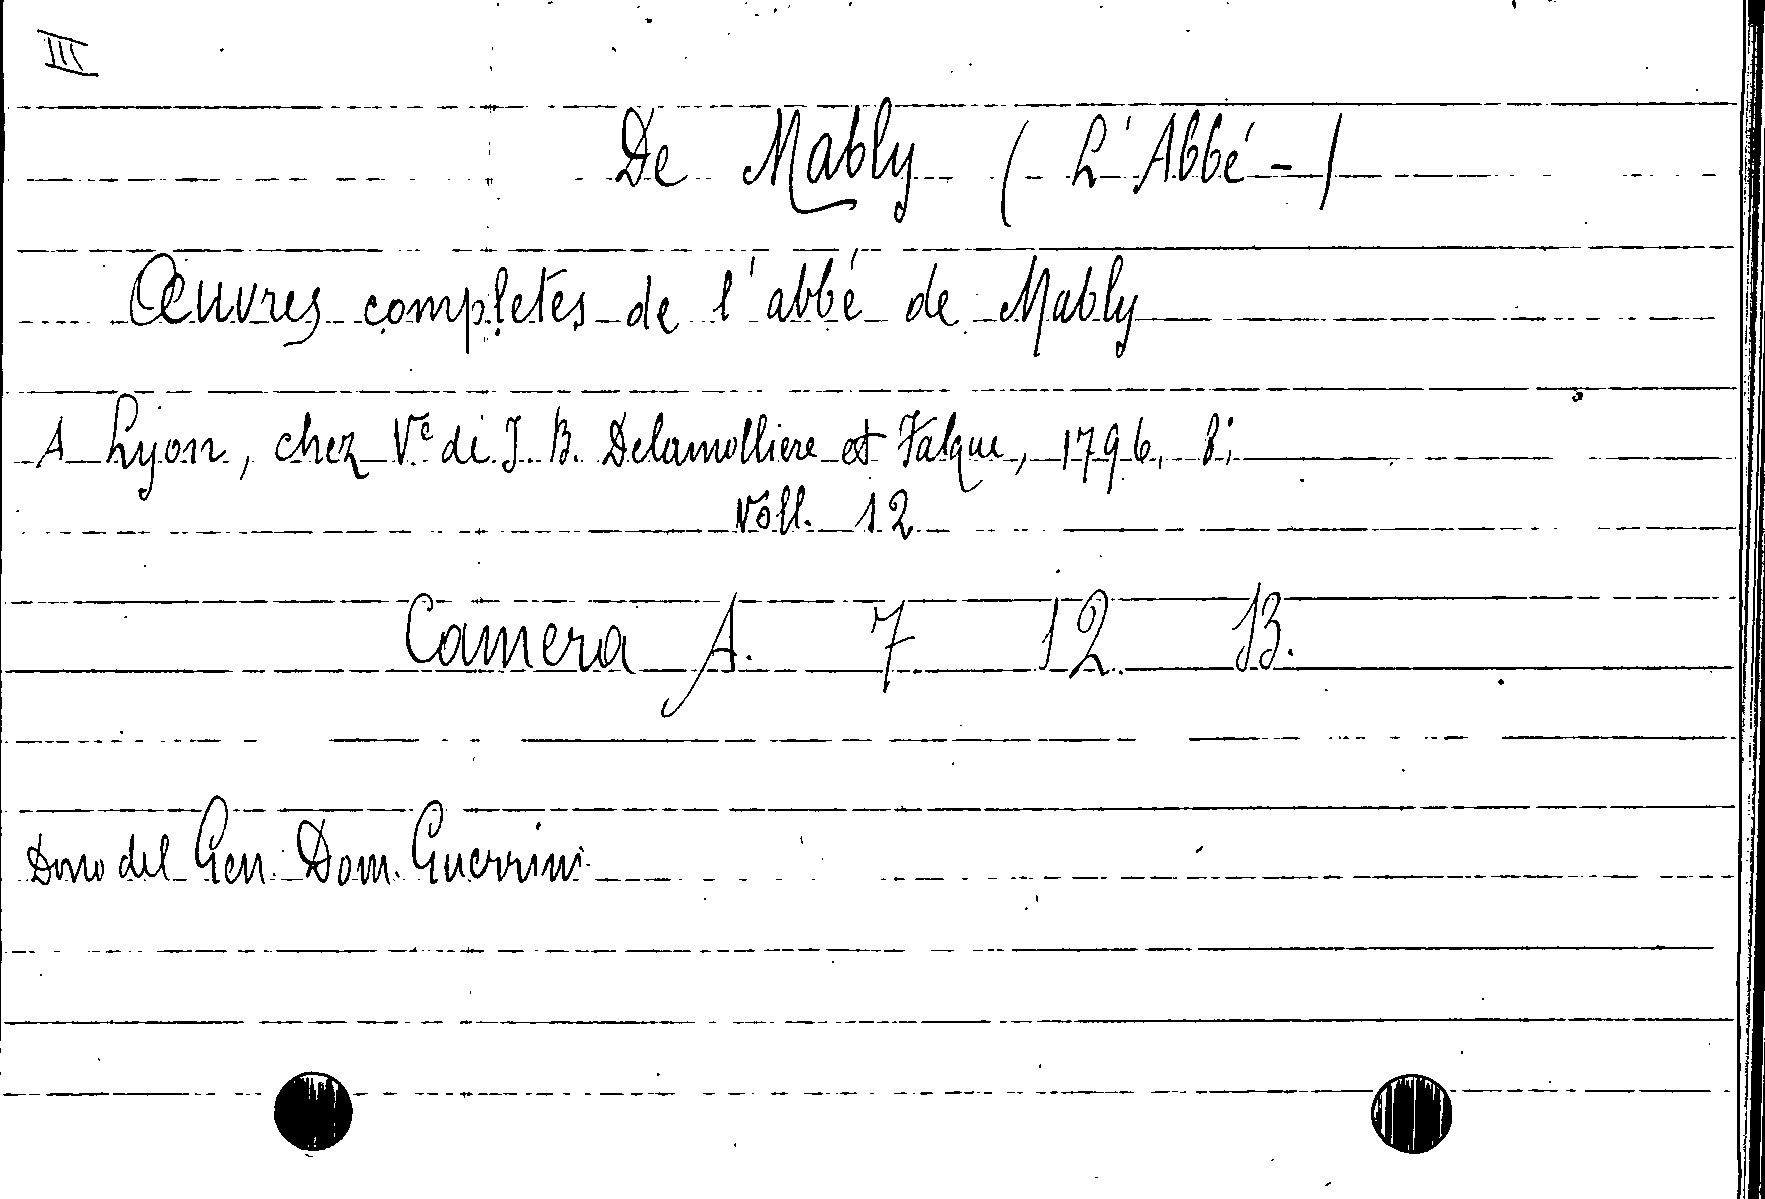 III
De Mably (L'Abbé-)
Œuvres completes de l'abbé de Mably
A Lyon, chez Vᵉ de J. B. Delamolliere et Falque, 1796, 8;
Voll. 12
Camera A. 7 12. B.
Dono del Gen. Dom. Guerrini